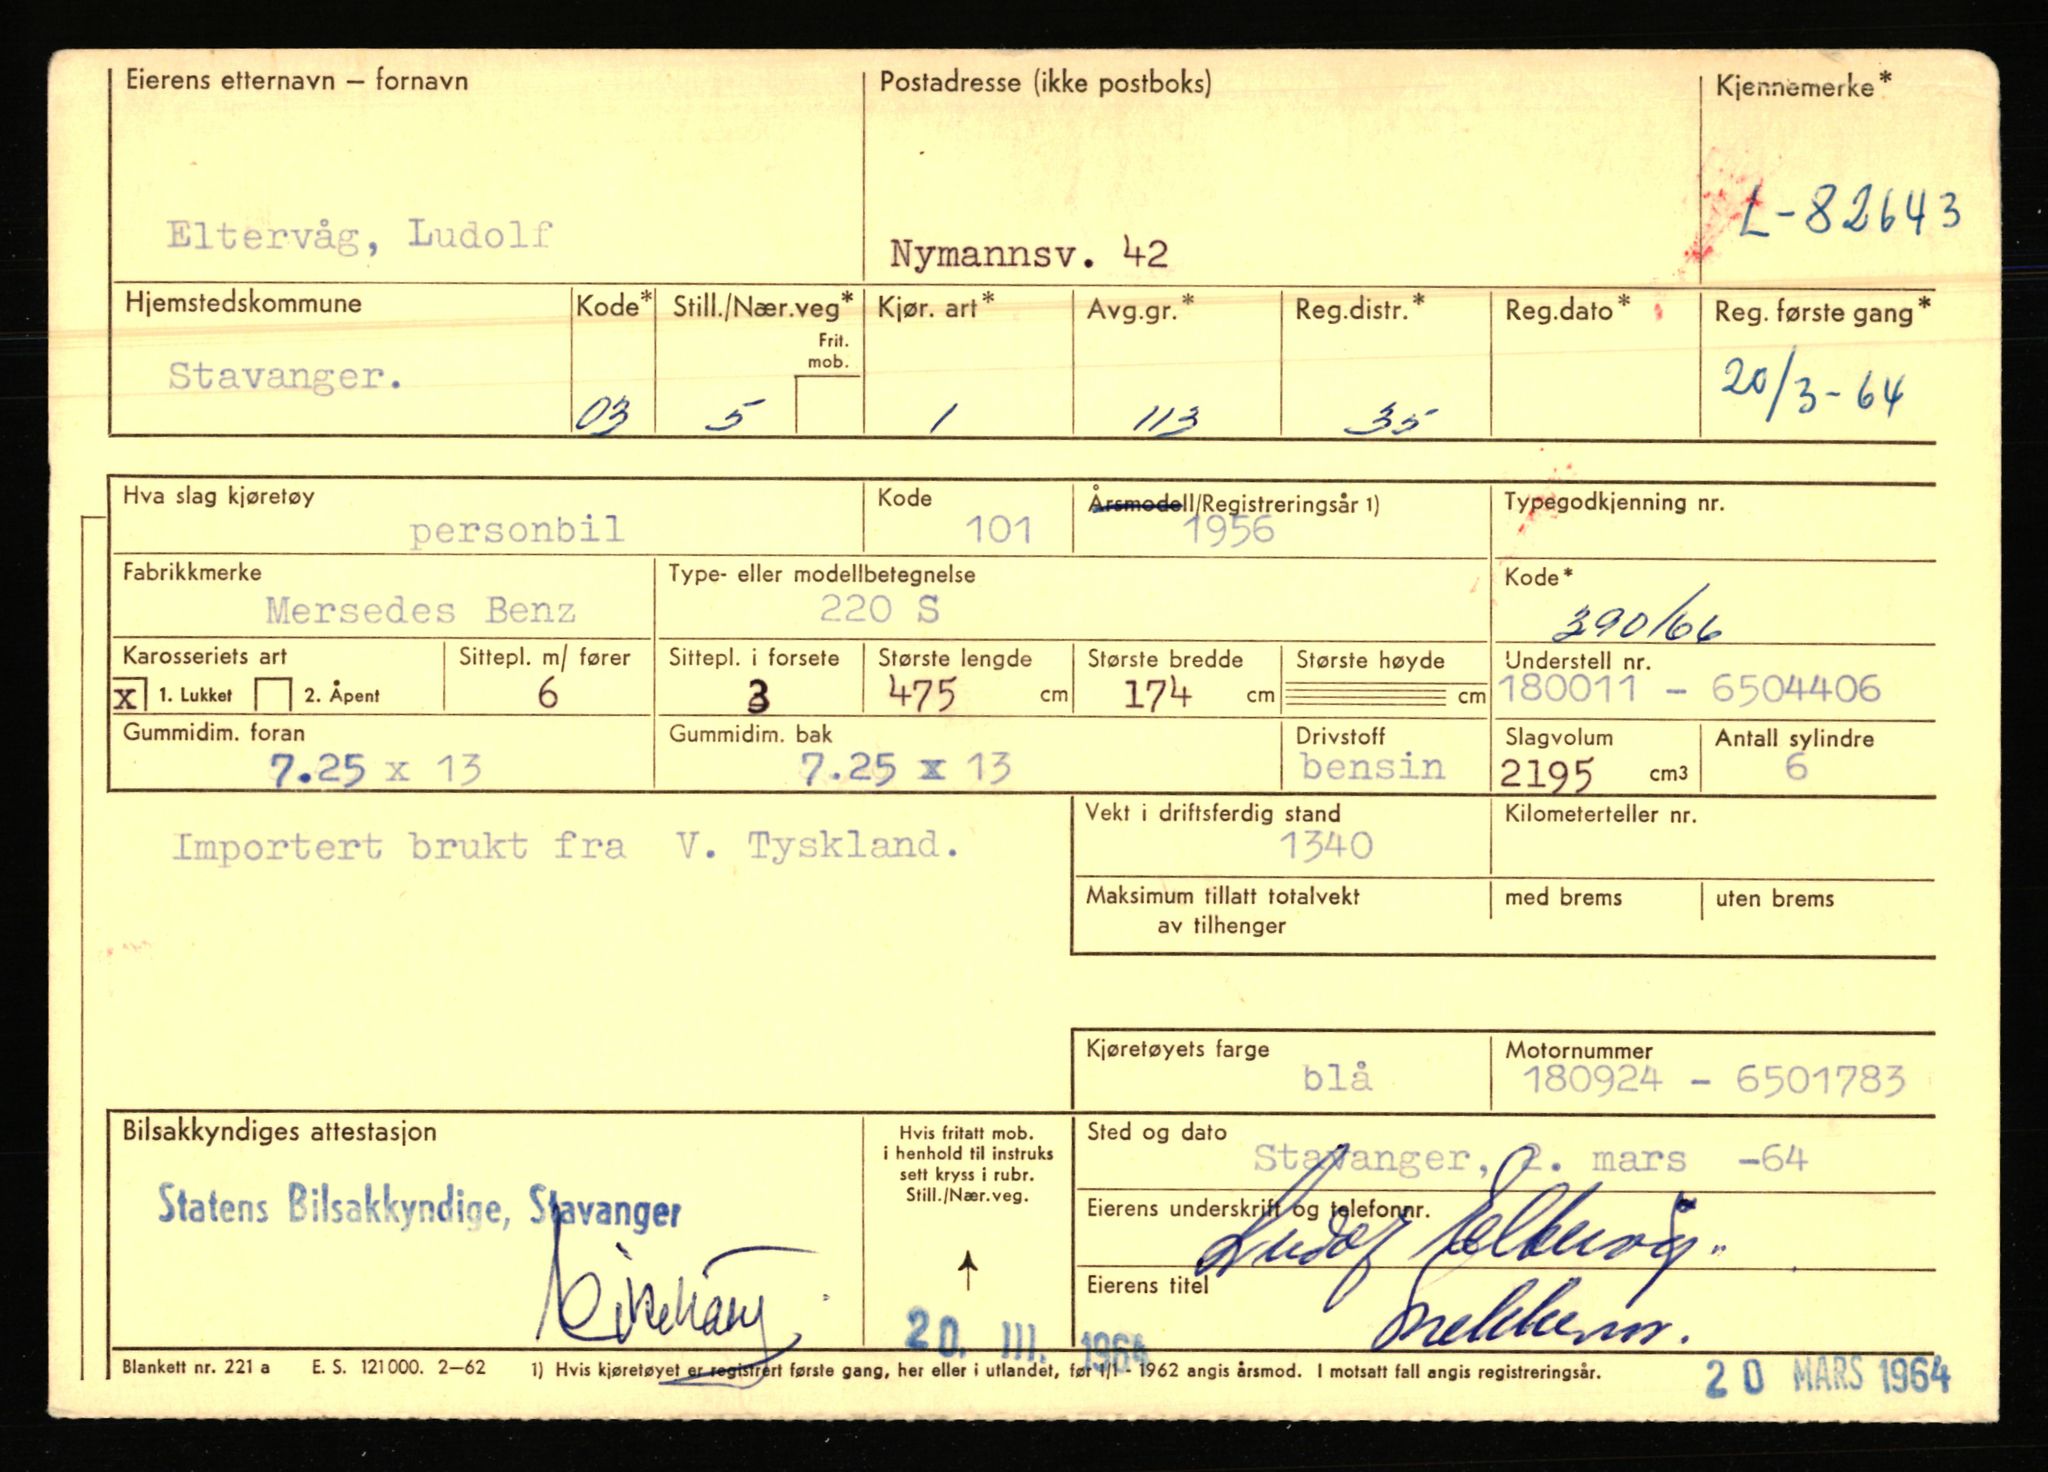 Eierens etternavn — fornavn
Postadresse (ikke postboks)
Kjennemerke*
Eltervåg, Ludolf
Nymannsv. 42
L-82643
Hjemstedskommune
Kode*
Still./Nær.veg*
Frit. mob.
Kjør. art*
Avg.gr.*
Reg.distr.*
Reg.dato*
Reg. første gang*
Stavanger.
03
5
1
113
35
20/3-64
Hva slag kjøretøy
Kode
Årsmodell/Registreringsår 1)
Typegodkjenning nr.
personbil
101
1956
Fabrikkmerke
Type- eller modellbetegnelse
Kode*
Mersedes Benz
220 S
390/66
Karosseriets art
Sittepl. m/ fører
Sittepl. i forsete
Største lengde
Største bredde
Største høyde
Understell nr.
X 1. Lukket
2. Åpent
6
3
475 cm
174 cm
cm
180011 - 6504406
Gummidim. foran
Gummidim. bak
Drivstoff
Slagvolum
Antall sylindre
7.25 x 13
7.25 x 13
bensin
2195 cm3
6
Importert brukt fra V. Tyskland.
Vekt i driftsferdig stand
Kilometerteller nr.
1340
Maksimum tillatt totalvekt
av tilhenger
med brems
uten brems
Kjøretøyets farge
Motornummer
blå
180924 - 6501783
Bilsakkyndiges attestasjon
Hvis fritatt mob.
i henhold til instruks
sett kryss i rubr.
Still./Nær.veg.
Sted og dato
Stavanger, 2. mars -64
Statens Bilsakkyndige, Stavanger
Eierens underskrift og telefonnr.
Ludolf Eltervåg.
Eierens titel
20. III. 1964
Blankett nr. 221 a
E. S. 121000. 2—62
1) Hvis kjøretøyet er registrert første gang, her eller i utlandet, før 1/1 - 1962 angis årsmod. I motsatt fall angis registreringsår.
20 MARS 1964